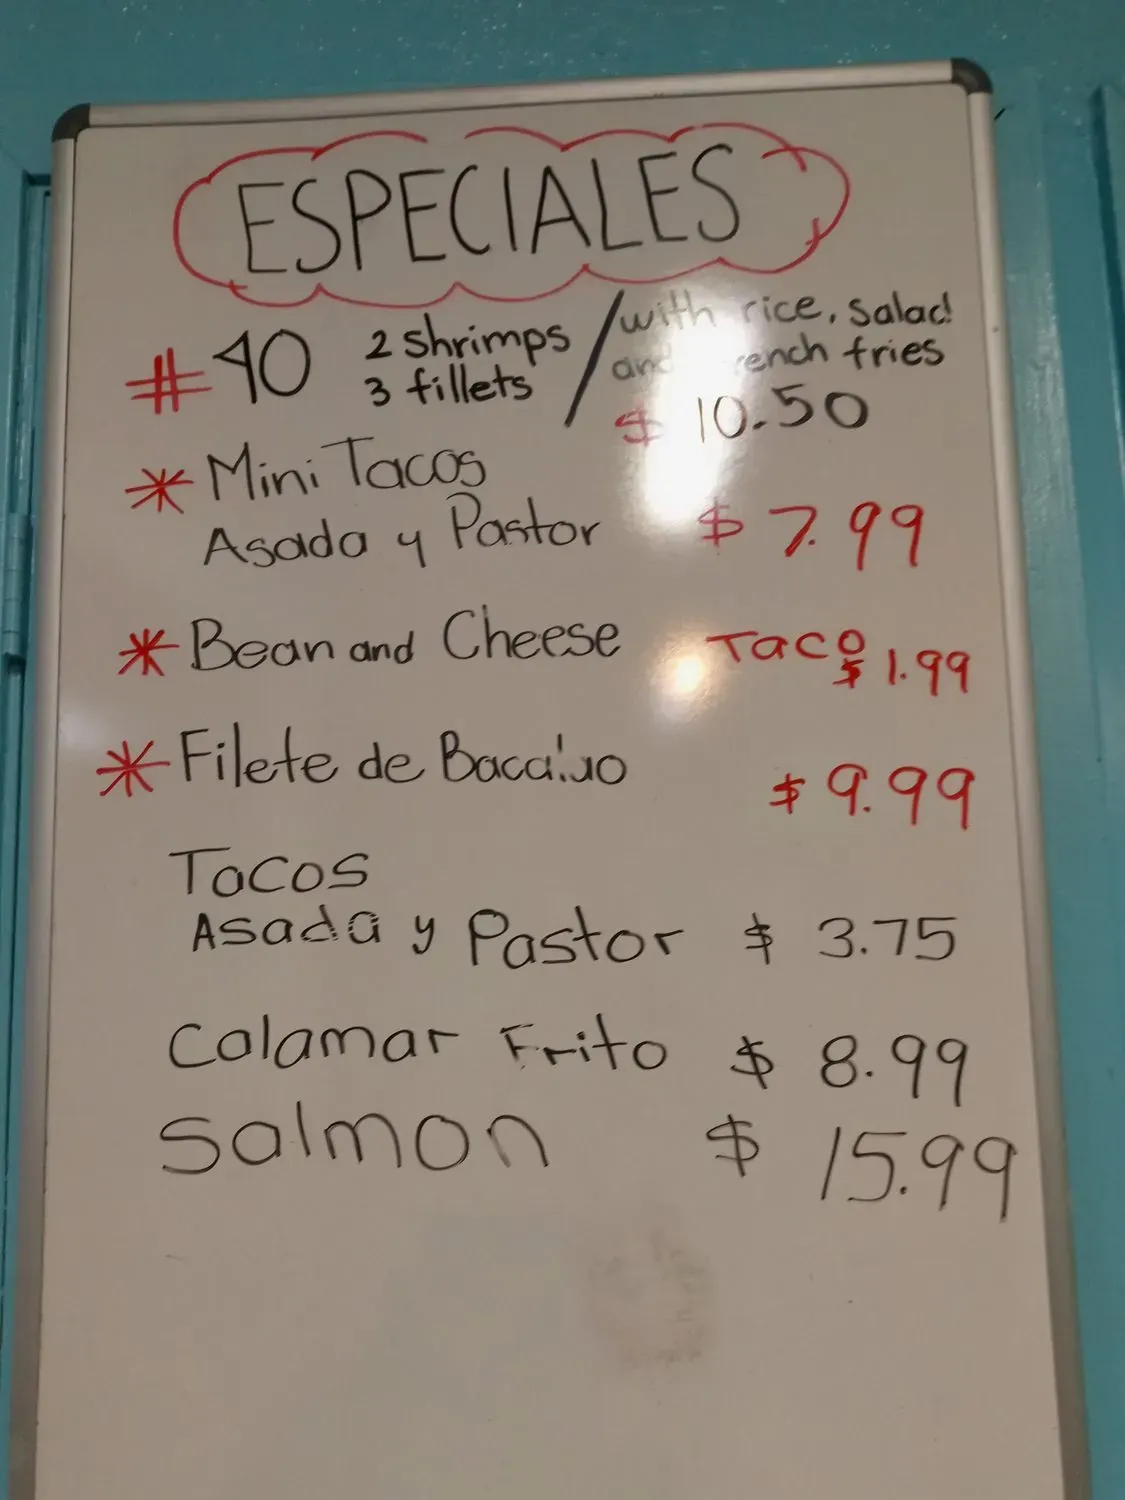 ESPECIALES
#40 2 shrimps / with rice, salad
3 fillets and french fries
$ 10.50
* Mini Tacos
Asada y Pastor $ 7.99
* Bean and Cheese Taco $ 1.99
* Filete de
$ 9.99
Tacos
Asada y Pastor $ 3.75
Calamar Frito $ 8.99
Salmon $ 15.99